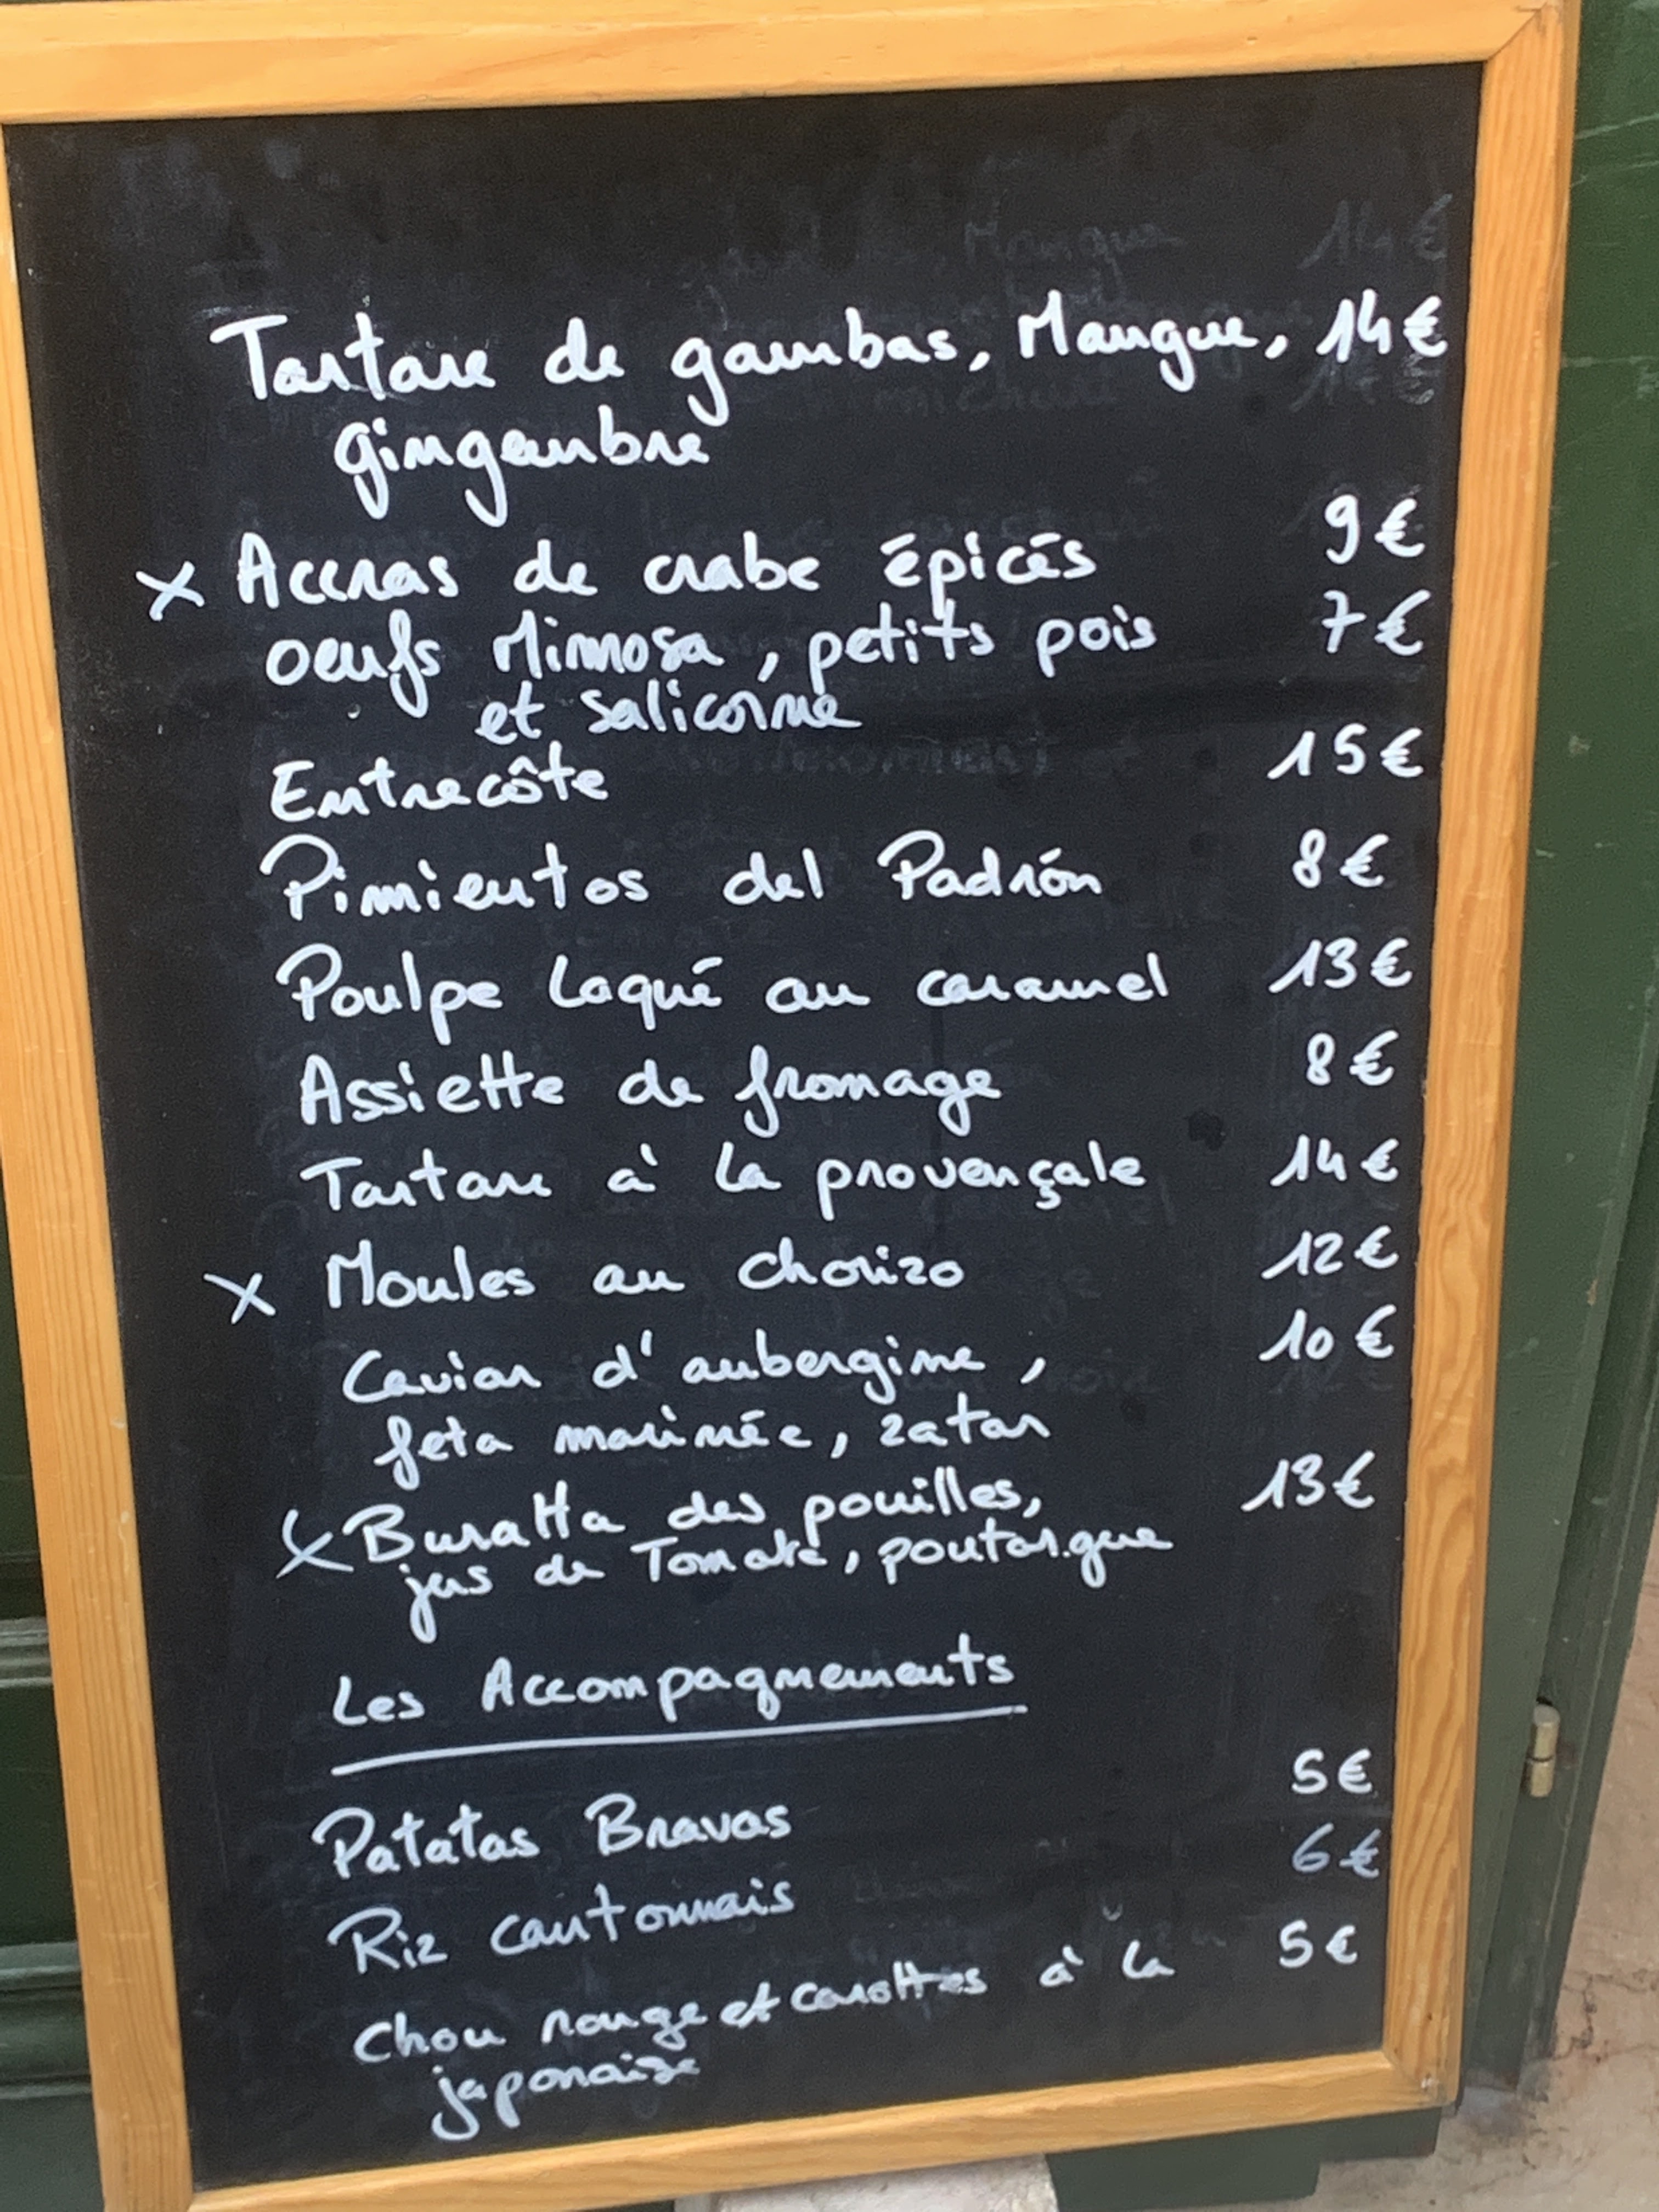 Tartare de gambas, Mangue, 14€
gingembre
x Accras de crabe épicés 9€
oeufs Mimosa, petits pois 7€
et salicorne
Entrecôte 15€
Pimientos del Padrón 8€
Poulpe laqué au caramel 13€
Assiette de fromage 8€
Tartare à la provençale 14€
x Moules au chorizo 12€
Caviar d'aubergine, 10€
feta marinée, zatar
x Buratta des pouilles, 13€
jus de Tomate, poutargue
Les Accompagnements
Patatas Bravas 5€
Riz cantonnais 6€
Chou rouge et carottes à la 5€
japonaise